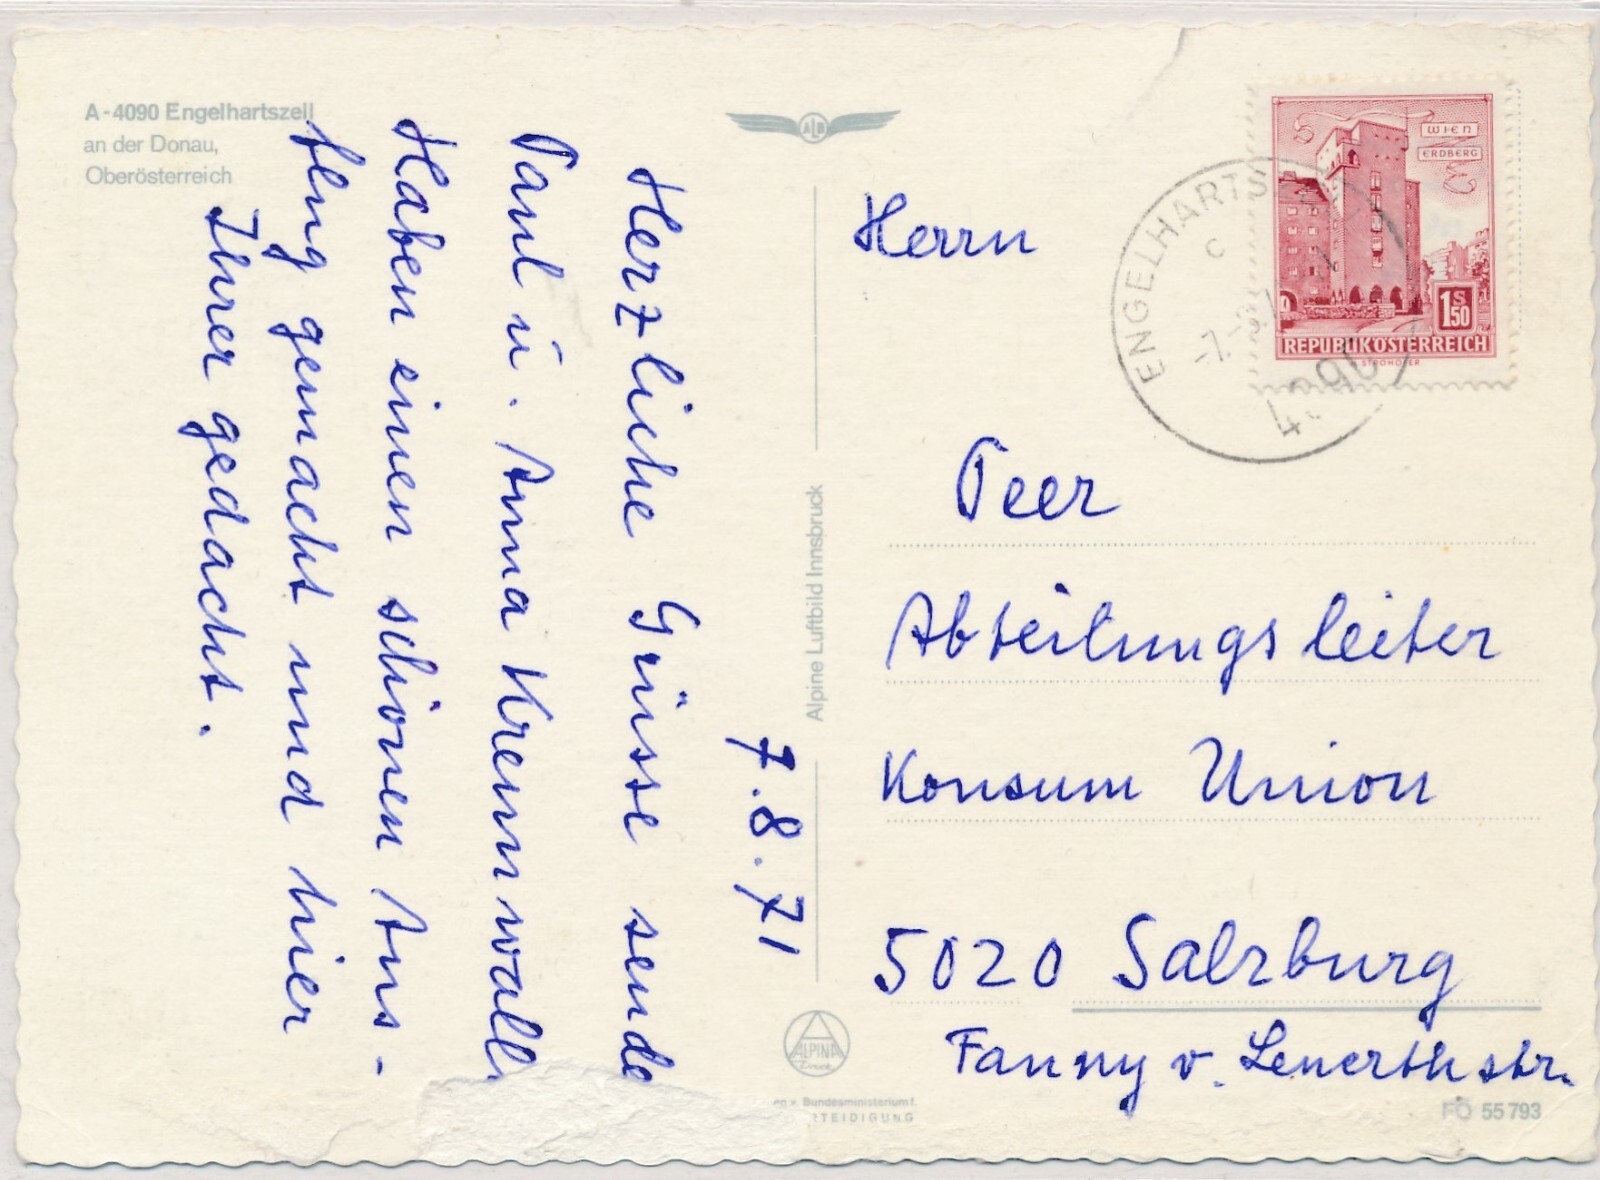 A-4090 Engelhartszell
an der Donau,
Oberösterreich
ALB
7.8.71
Herzliche Grüsse sende
Paul u. Anna Kremwall.
Haben einen schönen Aus-
flug gemacht und hier
Ihrer gedacht.
Alpine Luftbild Innsbruck
ALPINA
Bundesministerium f.
WIEN
ERDBERG
1 S 50
REPUBLIK ÖSTERREICH
STROHOFER
ENGELHARTS
c
-7.-8.71
4090
Herrn
Peer
Abteilungsleiter
Konsum Union
5020 Salzburg
Fanny v. Lenerthstr.
FÖ 55793